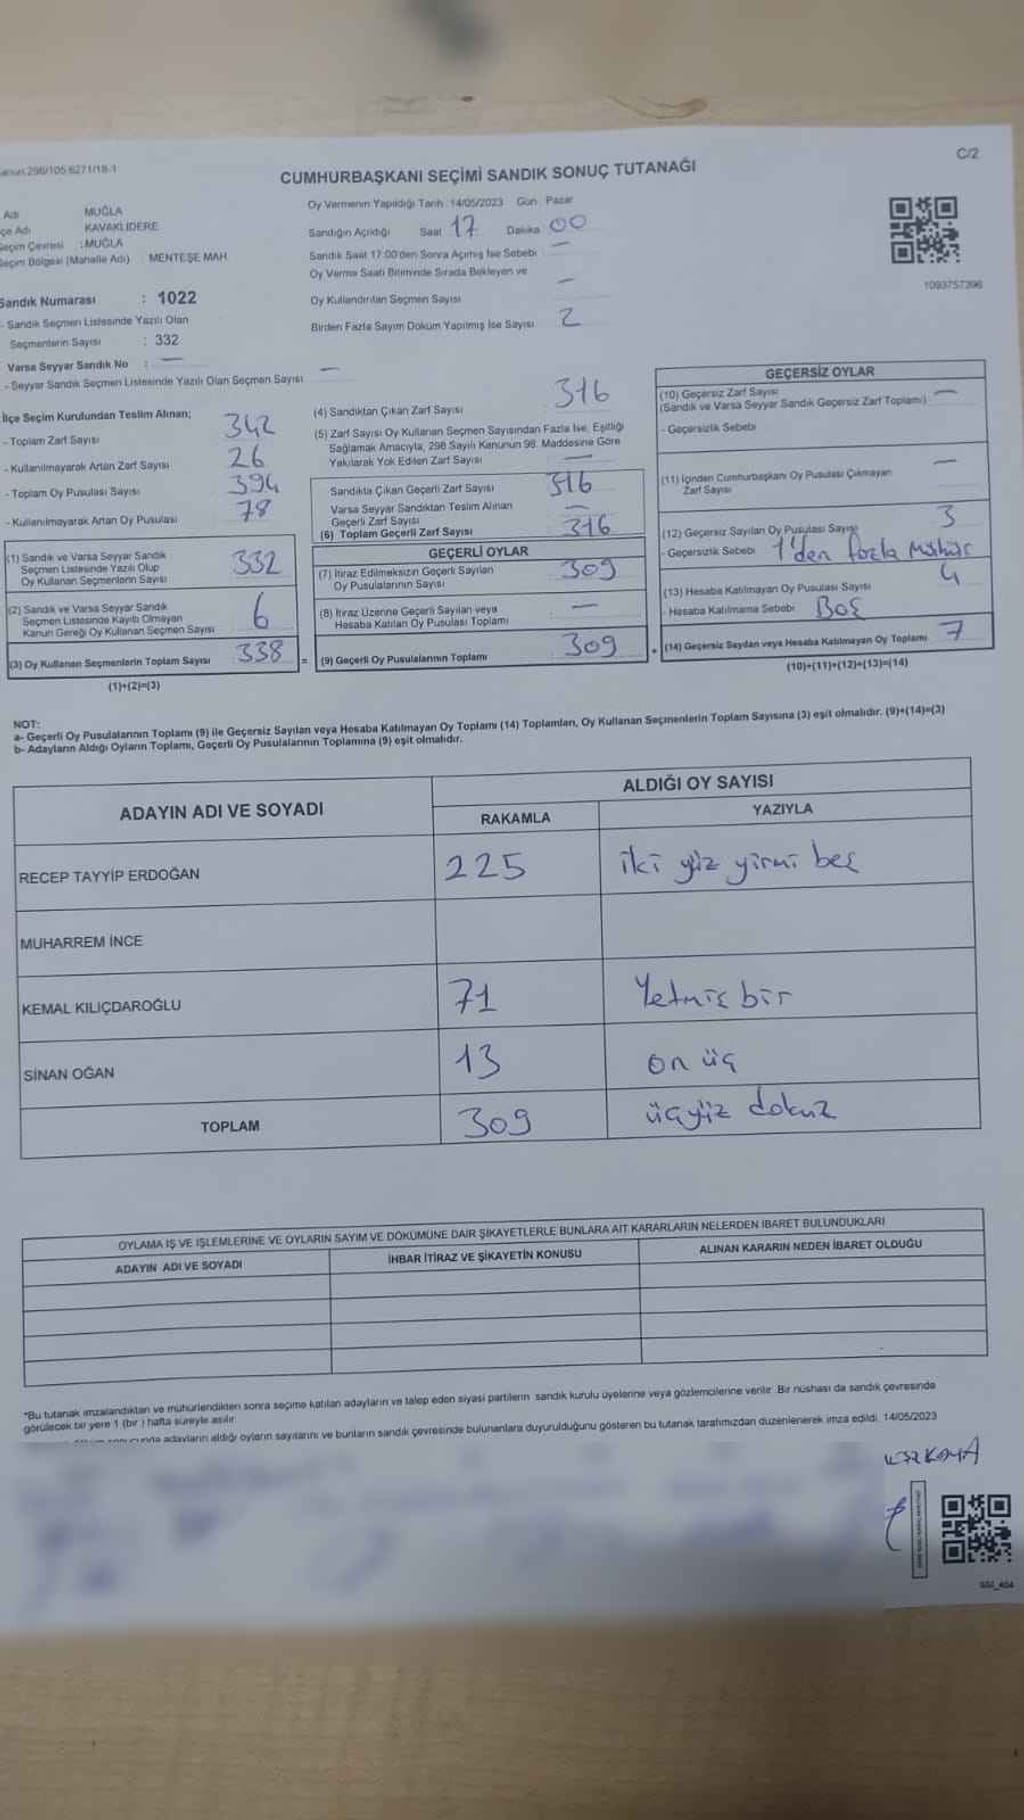 C/2
CUMHURBAŞKANI SEÇİMİ SANDIK SONUÇ TUTANAĞI
Adı MUĞLA
çe Adı KAVAKLIDERE
Seçim Çevresi : MUĞLA
Seçim Bölgesi (Mahalle Adı) : MENTEŞE MAH.
Sandık Numarası : 1022
- Sandık Seçmen Listesinde Yazılı Olan
Seçmenlerin Sayısı : 332
Varsa Seyyar Sandık No : —
- Seyyar Sandık Seçmen Listesinde Yazılı Olan Seçmen Sayısı —
Oy Vermenin Yapıldığı Tarih :14/05/2023 Gün : Pazar
Sandığın Açıldığı Saat 17 Dakika 00
Sandık Saat 17:00'den Sonra Açılmış İse Sebebi —
Oy Verme Saati Bitiminde Sırada Bekleyen ve
Oy Kullandırılan Seçmen Sayısı —
Birden Fazla Sayım Döküm Yapılmış İse Sayısı 2
1093757396
İlçe Seçim Kurulundan Teslim Alınan;
- Toplam Zarf Sayısı 342
- Kullanılmayarak Artan Zarf Sayısı 26
- Toplam Oy Pusulası Sayısı 394
- Kullanılmayarak Artan Oy Pusulası 78
(1) Sandık ve Varsa Seyyar Sandık
Seçmen Listesinde Yazılı Olup
Oy Kullanan Seçmenlerin Sayısı 332
(2) Sandık ve Varsa Seyyar Sandık
Seçmen Listesinde Kayıtlı Olmayan
Kanun Gereği Oy Kullanan Seçmen Sayısı 6
(3) Oy Kullanan Seçmenlerin Toplam Sayısı 338
(1)+(2)=(3)
(4) Sandıktan Çıkan Zarf Sayısı 316
(5) Zarf Sayısı Oy Kullanan Seçmen Sayısından Fazla İse, Eşitliği
Sağlamak Amacıyla, 298 Sayılı Kanunun 98. Maddesine Göre
Yakılarak Yok Edilen Zarf Sayısı —
Sandıkta Çıkan Geçerli Zarf Sayısı 316
Varsa Seyyar Sandıktan Teslim Alınan
Geçerli Zarf Sayısı —
(6) Toplam Geçerli Zarf Sayısı 316
GEÇERLİ OYLAR
(7) İtiraz Edilmeksizin Geçerli Sayılan
Oy Pusulalarının Sayısı 309
(8) İtiraz Üzerine Geçerli Sayılan veya
Hesaba Katılan Oy Pusulası Toplamı —
= (9) Geçerli Oy Pusulalarının Toplamı 309
GEÇERSİZ OYLAR
(10) Geçersiz Zarf Sayısı —
(Sandık ve Varsa Seyyar Sandık Geçersiz Zarf Toplamı)
- Geçersizlik Sebebi
(11) İçinden Cumhurbaşkanı Oy Pusulası Çıkmayan
Zarf Sayısı —
(12) Geçersiz Sayılan Oy Pusulası Sayısı 3
- Geçersizlik Sebebi 1'den fazla mühür
(13) Hesaba Katılmayan Oy Pusulası Sayısı 4
- Hesaba Katılmama Sebebi Boş
+ (14) Geçersiz Sayılan veya Hesaba Katılmayan Oy Toplamı 7
(10)+(11)+(12)+(13)=(14)
NOT:
a- Geçerli Oy Pusulalarının Toplamı (9) ile Geçersiz Sayılan veya Hesaba Katılmayan Oy Toplamı (14) Toplamları, Oy Kullanan Seçmenlerin Toplam Sayısına (3) eşit olmalıdır. (9)+(14)=(3)
b- Adayların Aldığı Oyların Toplamı, Geçerli Oy Pusulalarının Toplamına (9) eşit olmalıdır.
ADAYIN ADI VE SOYADI ALDIĞI OY SAYISI
RAKAMLA YAZIYLA
RECEP TAYYİP ERDOĞAN 225 iki yüz yirmi beş
MUHARREM İNCE
KEMAL KILIÇDAROĞLU 71 Yetmiş bir
SİNAN OĞAN 13 on üç
TOPLAM 309 üçyüz dokuz
OYLAMA İŞ VE İŞLEMLERİNE VE OYLARIN SAYIM VE DÖKÜMÜNE DAİR ŞİKAYETLERLE BUNLARA AİT KARARLARIN NELERDEN İBARET BULUNDUKLARI
ADAYIN ADI VE SOYADI İHBAR İTİRAZ VE ŞİKAYETİN KONUSU ALINAN KARARIN NEDEN İBARET OLDUĞU
*Bu tutanak imzalandıktan ve mühürlendikten sonra seçime katılan adayların ve talep eden siyasi partilerin sandık kurulu üyelerine veya gözlemcilerine verilir. Bir nüshası da sandık çevresinde
görülecek bir yere 1 (bir) hafta süreyle asılır.
adayların aldığı oyların sayılarını ve bunların sandık çevresinde bulunanlara duyurulduğunu gösteren bu tutanak tarafımızdan düzenlenerek imza edildi. 14/05/2023